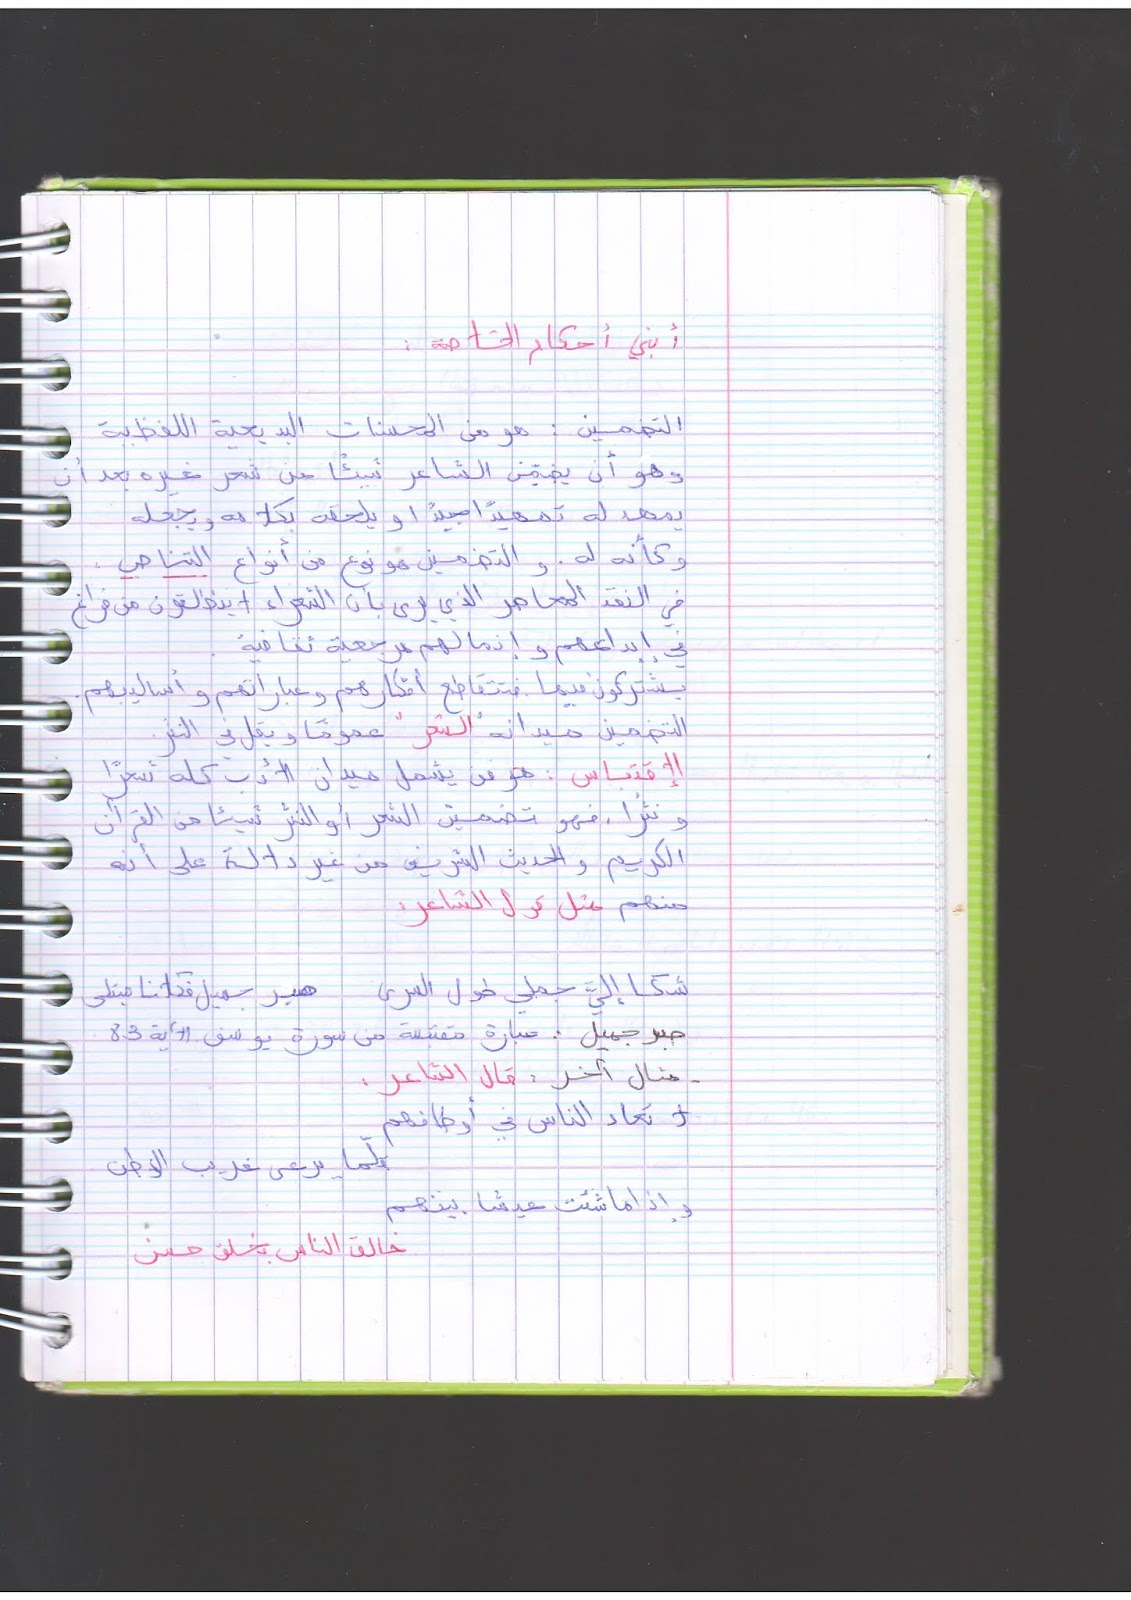 أبني أحكام الخاصة :
التضمين : هو من المحسنات البديعية اللفظية
وهو أن يضمِّن الشاعر شيئًا من شعر غيره بعد أن
يمهد له تمهيدًا جيدًا أو يلحقه بكلامه ويجعله
وكأنه له . و التضمين هو نوع من أنواع التناص .
في النقد المعاصر الذي يرى بأن الشعراء لا ينطلقون من فراغ
في إبداعهم و إنما لهم مرجعية ثقافية .
يشتركون فيها فتتقاطع أفكارهم وعباراتهم و أساليبهم .
التضمين ميدانه "الشعر" عمومًا و يقل في النثر .
الإقتباس : هو فن يشمل ميدان الأدب كله شعرًا
و نثرًا . فهو تضمين الشعر أو النثر شيئا من القرآن
الكريم و الحديث الشريف من غير دلالة على أنه
منهم مثل قول الشاعر :
شكا إليّ جملي طول السرى صبر جميل فكلانا مبتلى
صبر جميل : عبارة مقتبسة من سورة يوسف الآية 83
- مثال آخر : قال الشاعر :
لا تعاد الناس في أوطانهم
قلّما يرعى غريب الوطن
وإذا ما شئت عيشا بينهم
خالق الناس بخلق حسن